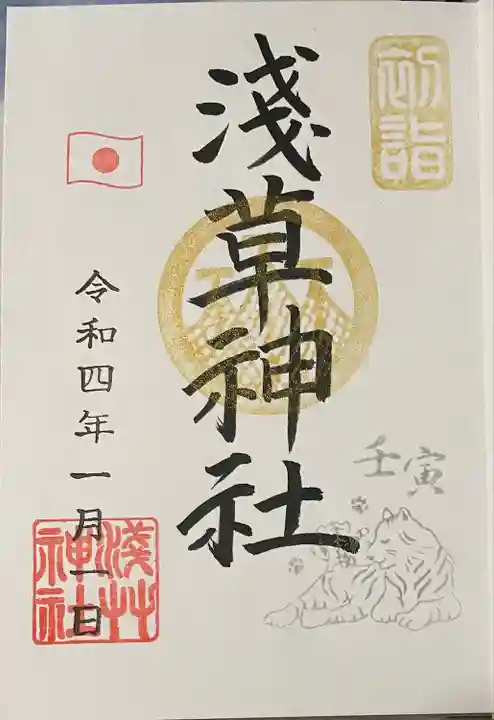 初詣
淺草神社
壬寅
令和四年一月一日
淺草
神社